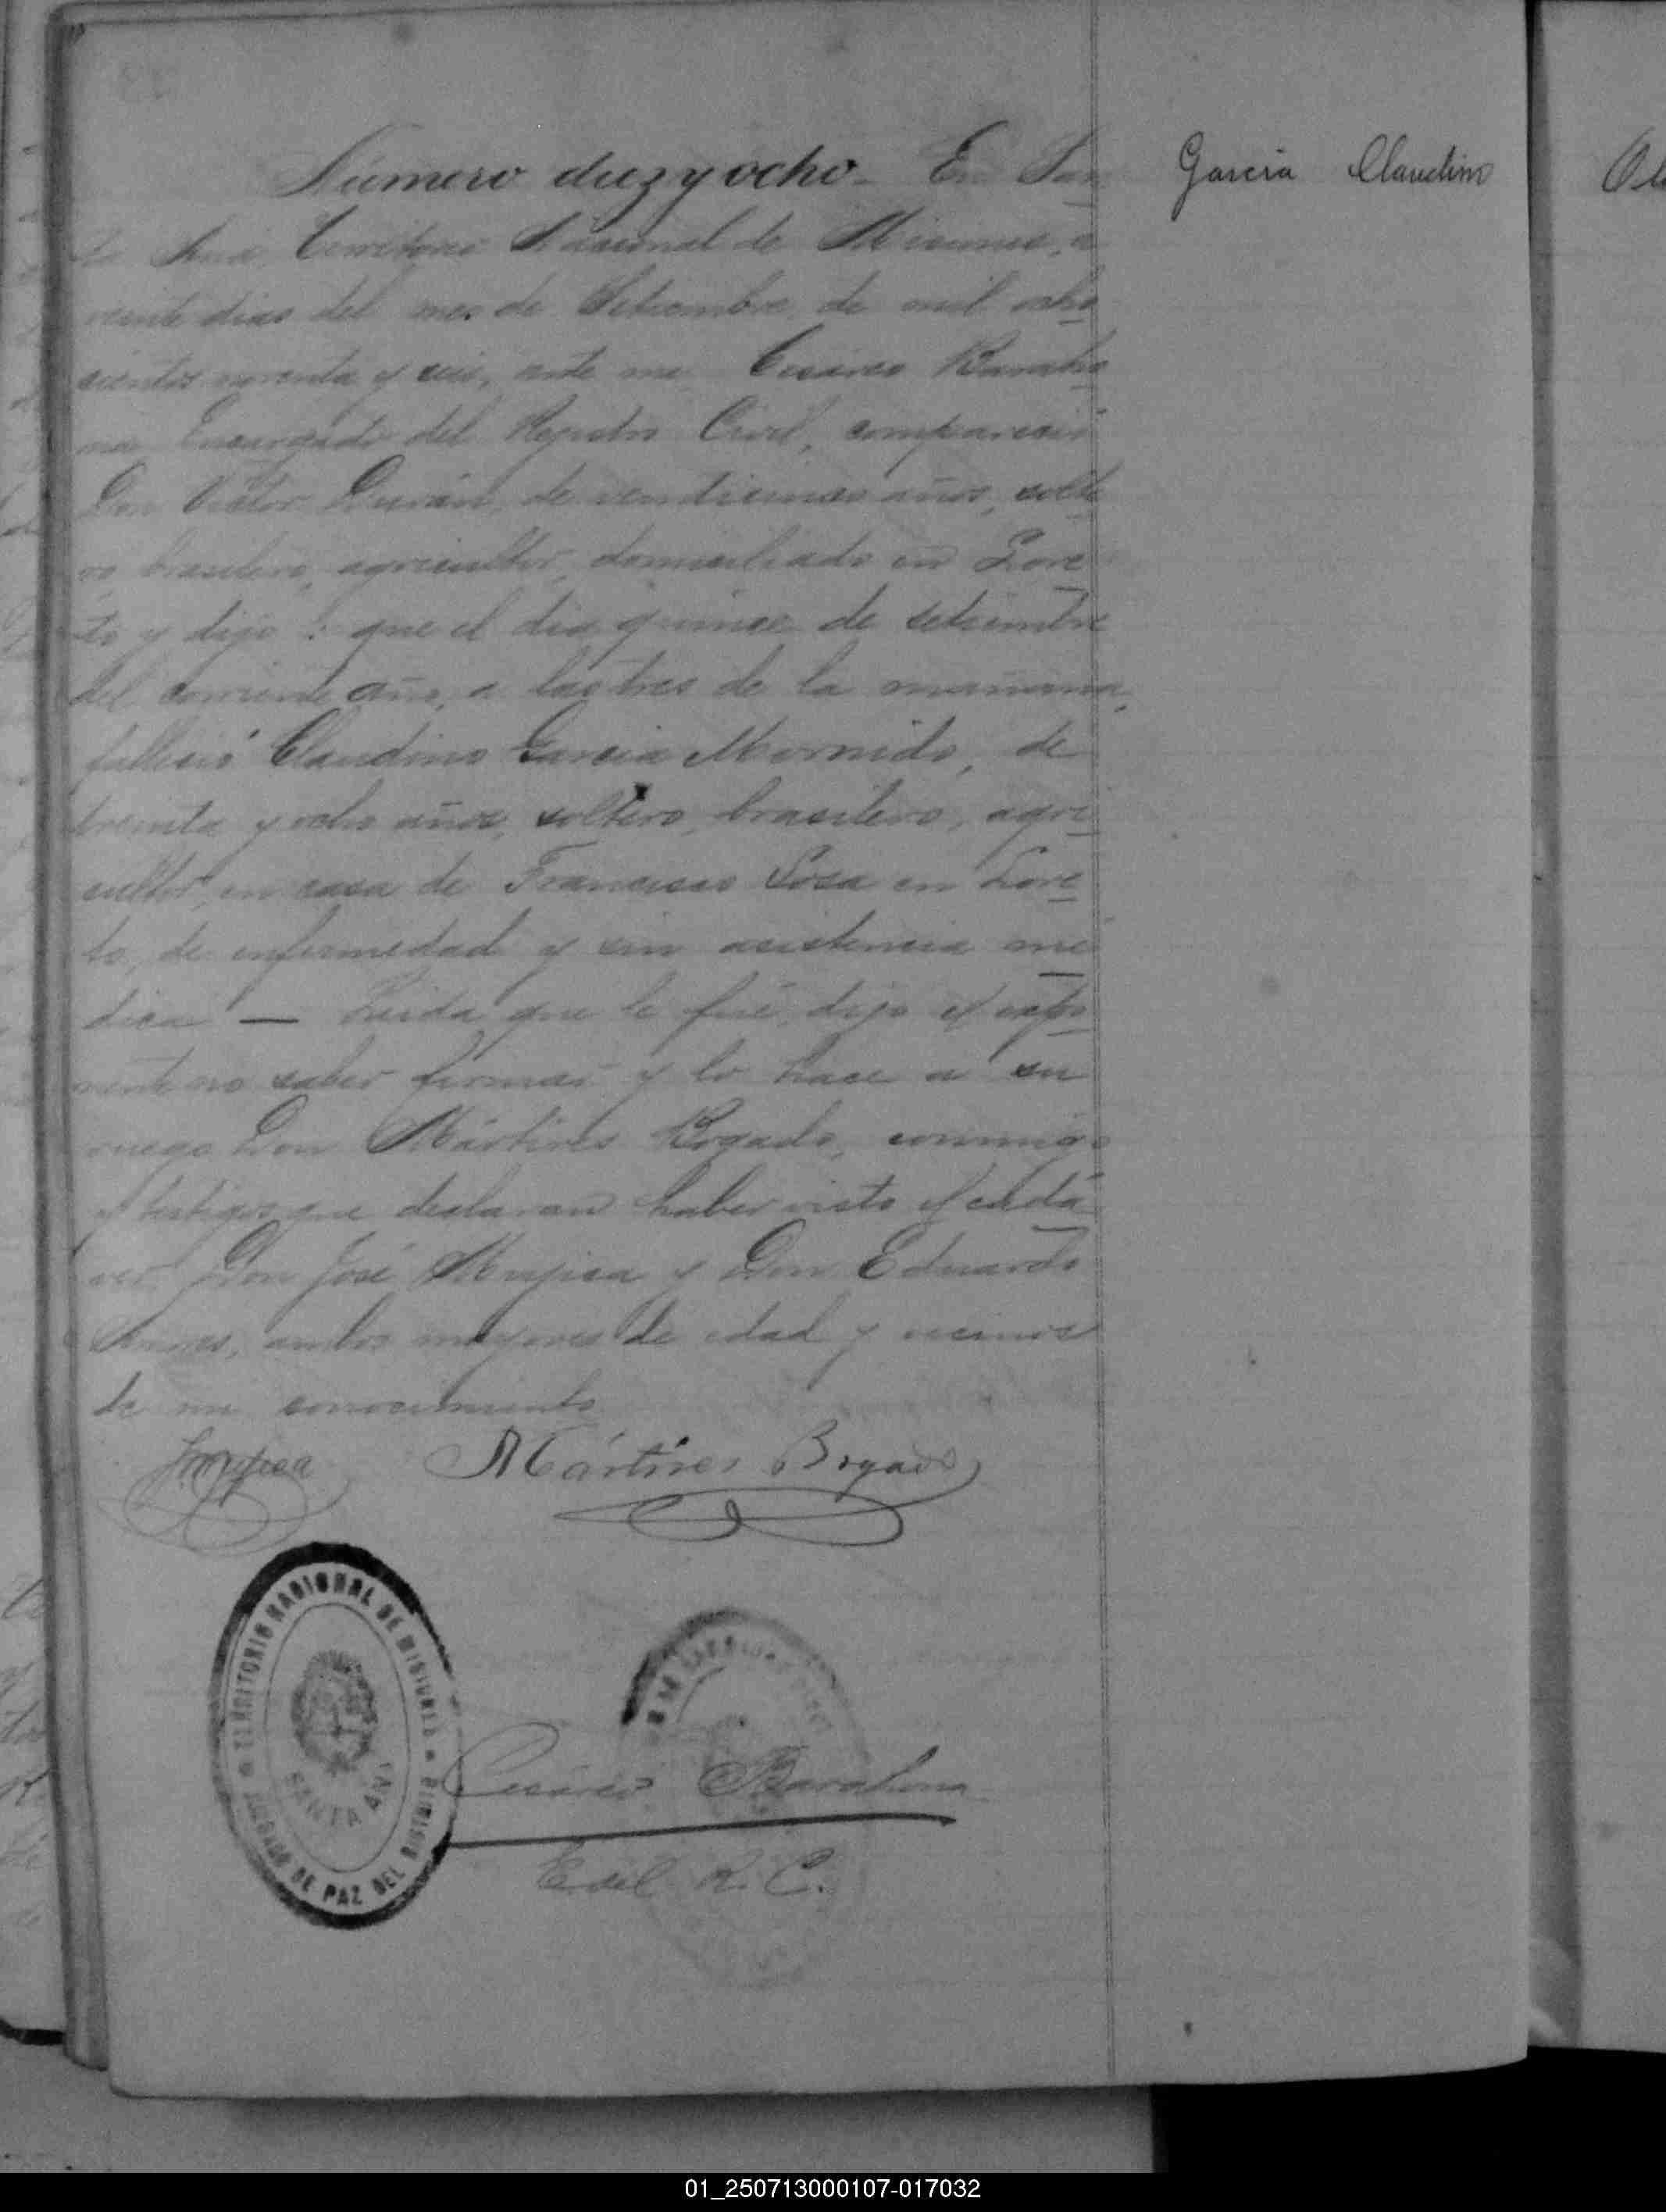 Número diez y ocho - En San
García Claudino
ta Ana, Territorio Nacional de Misiones, a
veinte dias del mes de Setiembre de mil ocho
cientos noventa y seis, ante mi, Cesáreo Baraho
na Encargado del Registro Civil, compareció
Don Victor Durán, de veinticinco años, solte
ro brasilero, agricultor, domiciliado en Lore
to y dijo: que el dia quince de setiembre
del corriente año, a las tres de la mañana,
falleció Claudino Garcia, de
treinta y ocho años, soltero, brasilero, agri
cultor, en casa de Francisco Sosa en Lore
to, de enfermedad y sin asistencia mé
dica — Leida que le fué, dijo el expo
nente no saber firmar y lo hace a su
ruego Don Mártires Bogado, conmigo
y testigos que declaran haber visto el cadá
ver, Don José Mujica y Don Eduardo
ambos mayores de edad y vecinos
de mi conocimiento
JMujica Mártires Bogado
TERRITORIO NACIONAL DE MISIONES
SANTA ANA
JUZGADO DE PAZ DEL DISTRITO
Cesáreo Barahona
E. del R. C.
01_250713000107-017032